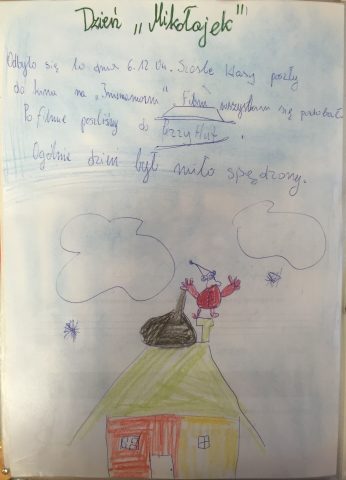 Dzień „Mikołajek"
Odbyło się to dnia 6.12 br. Szóste klasy poszły
do kina na „ Film wszystkim się podobał.
Po filmie poszliśmy do Pizzy Hut.
Ogólnie dzień był miło spędzony.